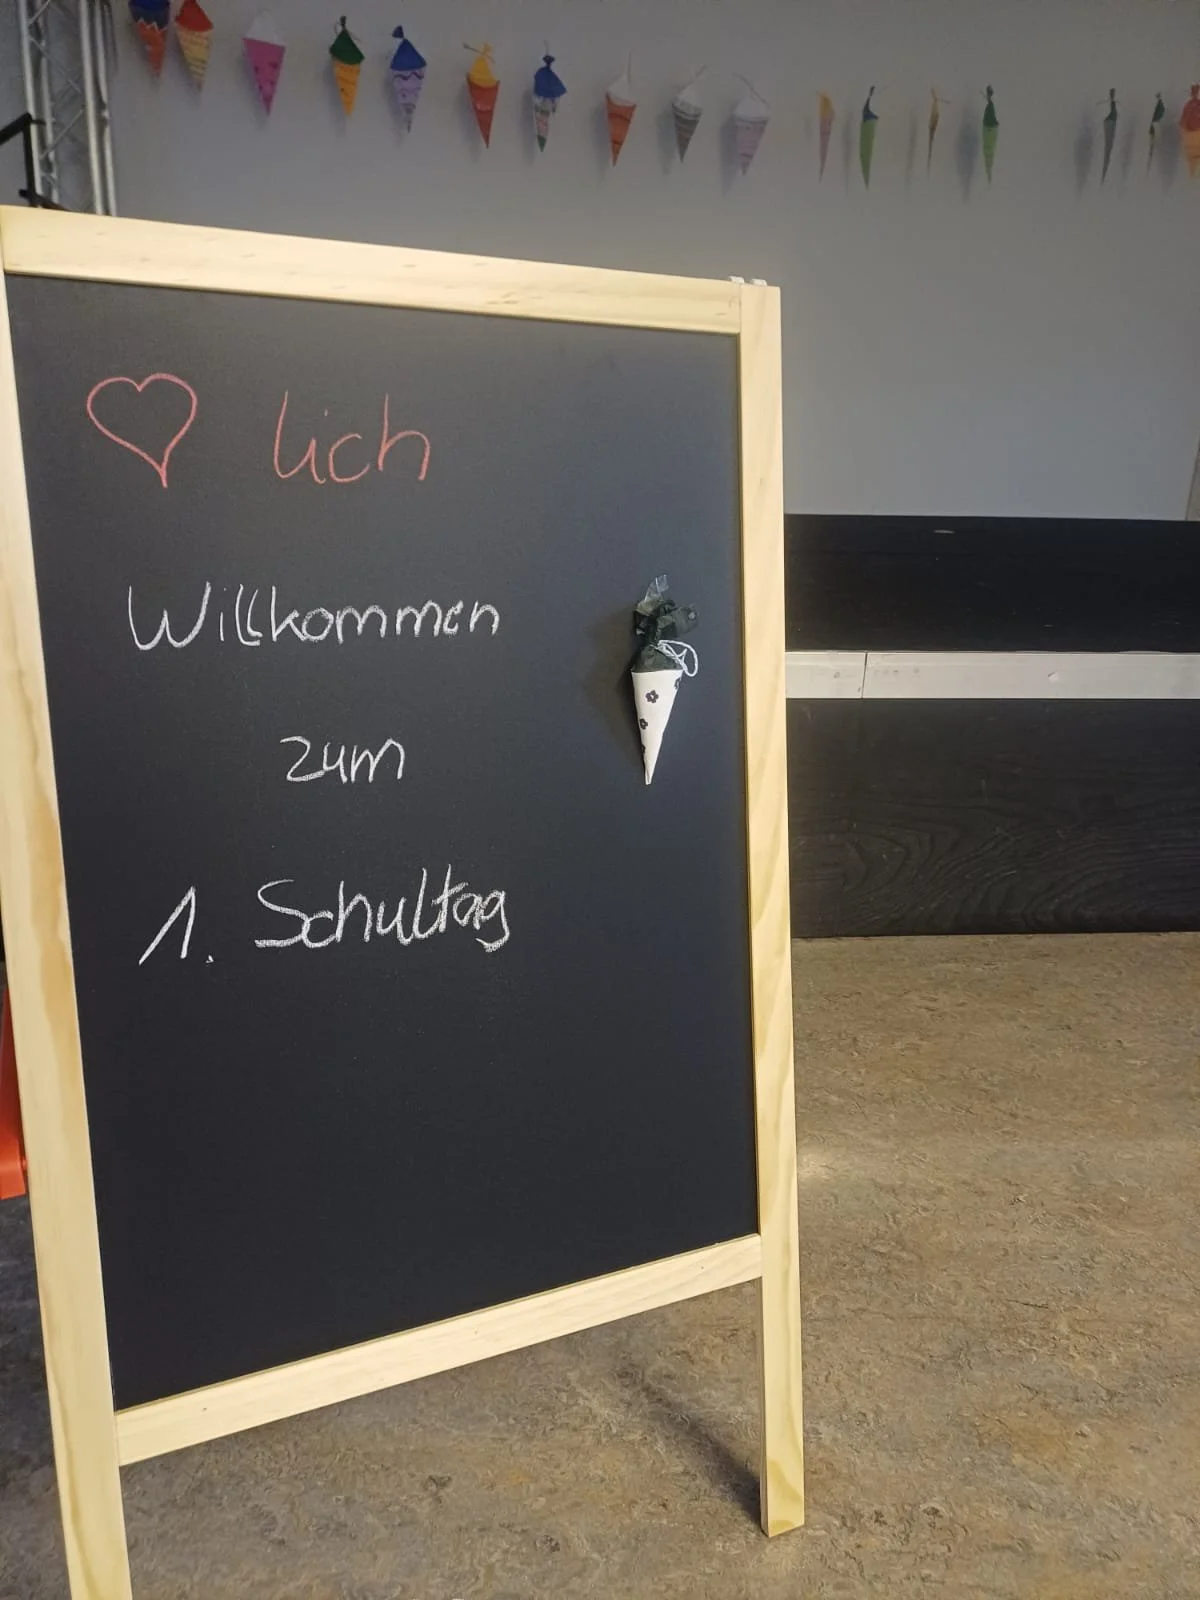 ♡ lich
Willkommen
zum
1. Schultag